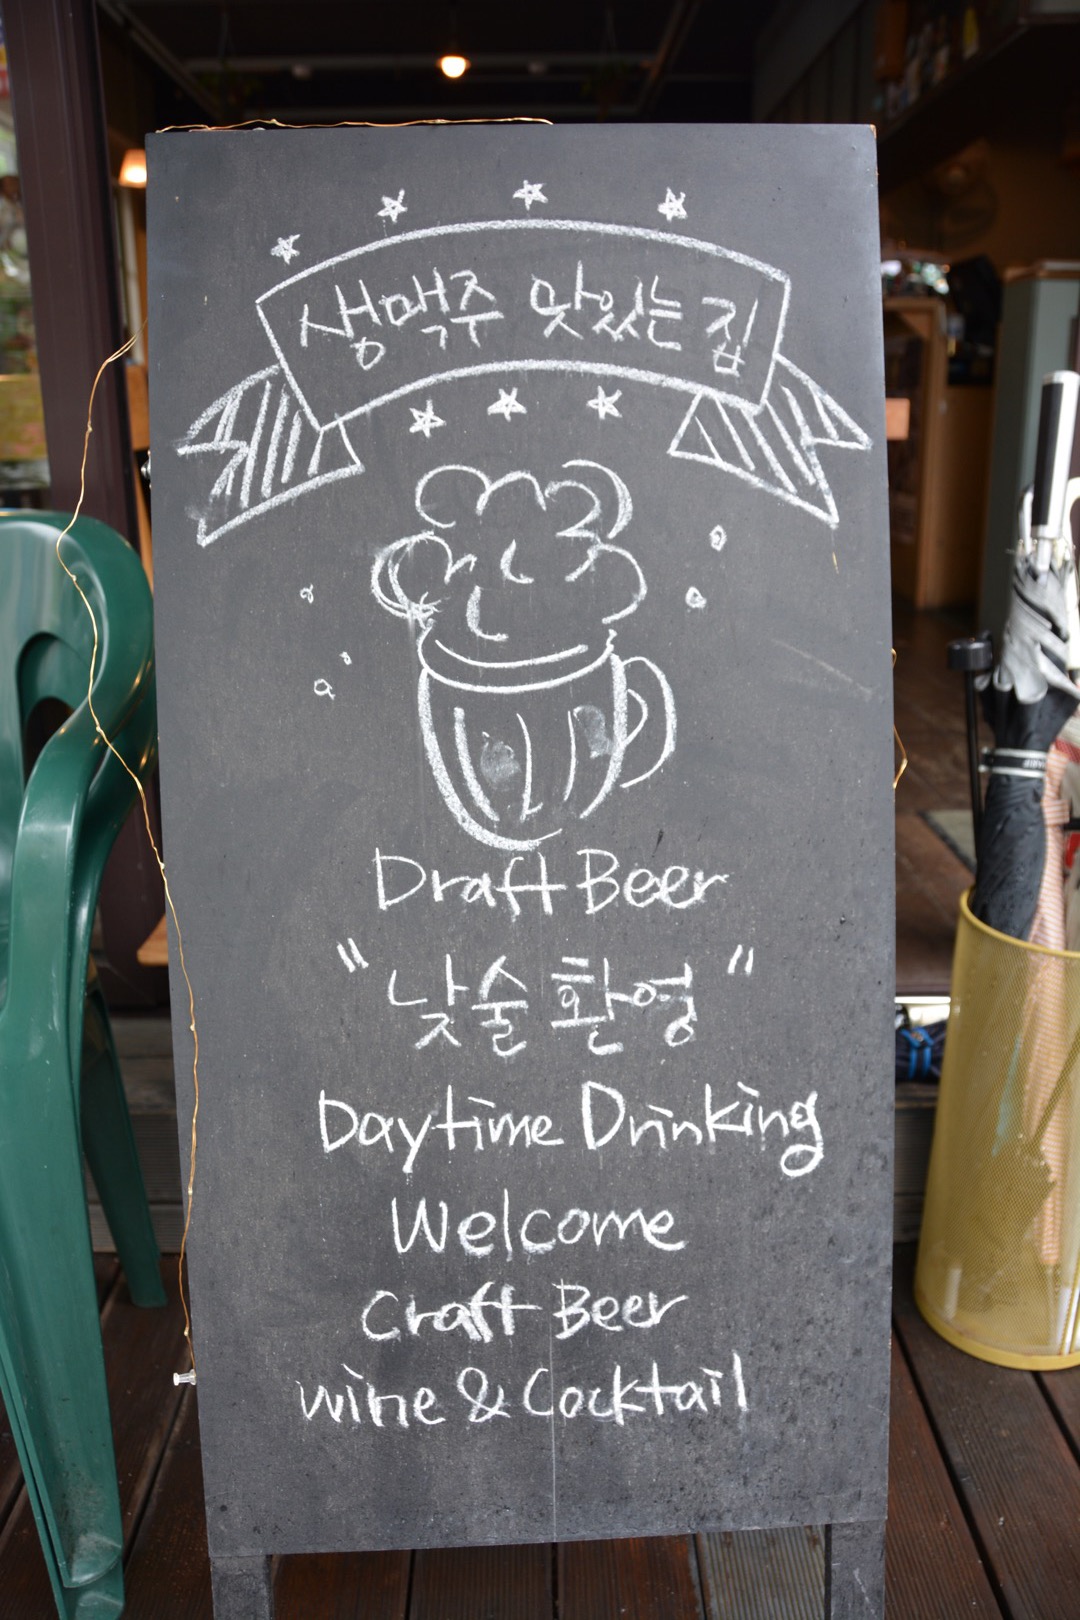 생맥주 맛있는 집
Draft Beer
"낮술 환영"
Daytime Drinking
Welcome
Craft Beer
wine & Cocktail